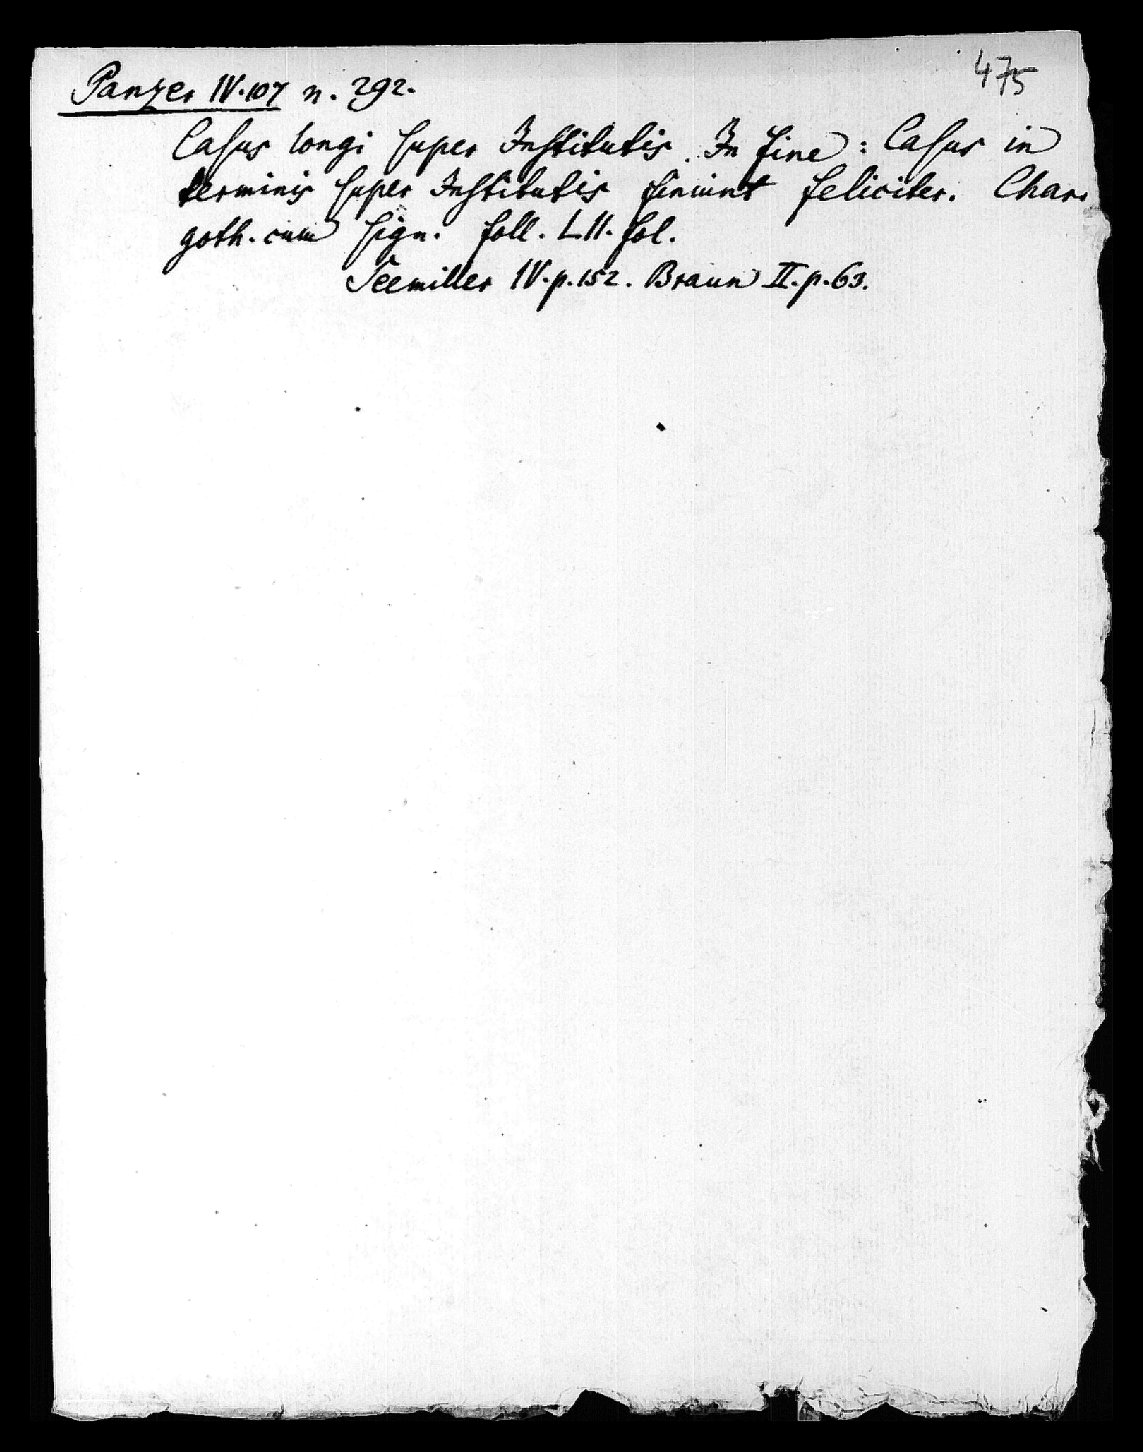 475
Panzer IV. 107 n. 292.
Casus longi super Institutis. In fine: Casus in
terminis super Institutis finiunt feliciter. Char.
goth. cum sign. foll. LII. fol.
Seemiller IV. p. 152. Braun II. p. 63.